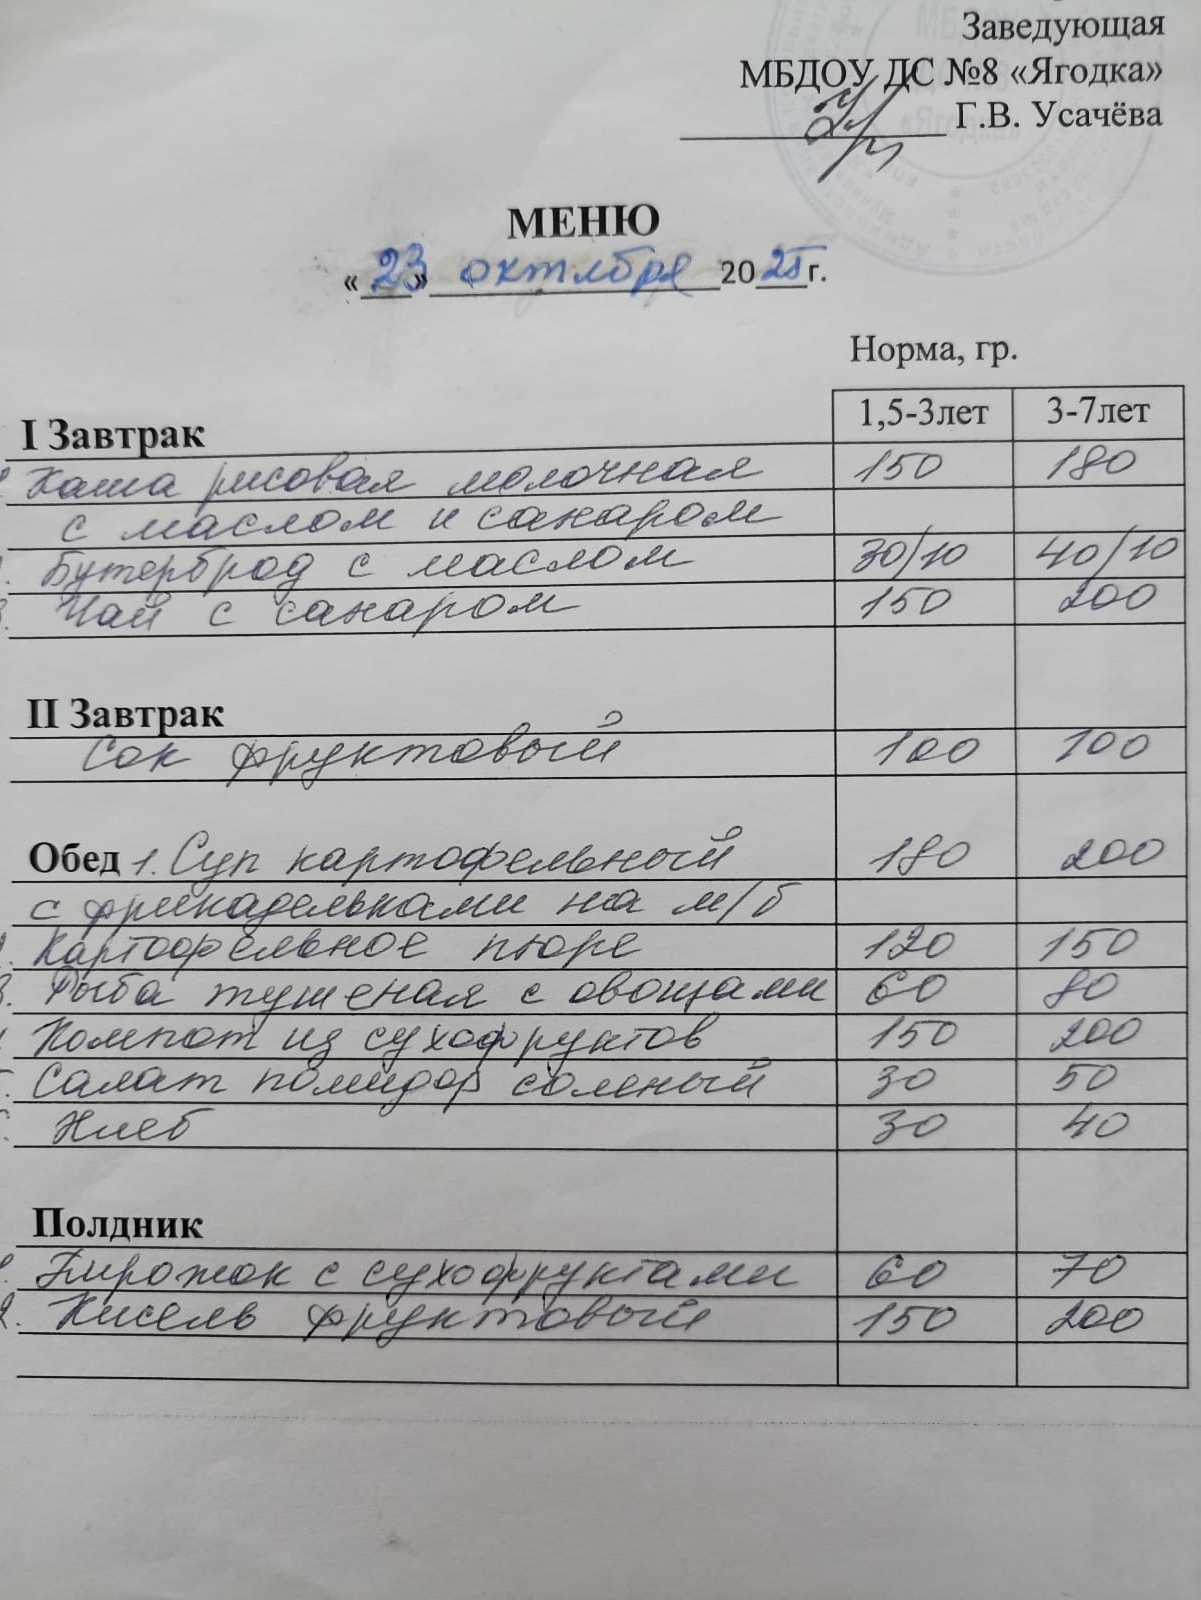 Заведующая
МБДОУ ДС №8 «Ягодка»
Г.В. Усачёва
МЕНЮ
«23» октября 2025 г.
Норма, гр.
I Завтрак 1,5-3лет 3-7лет
Каша рисовая молочная 150 180
с маслом и сахаром
Бутерброд с маслом 30/10 40/10
3. Чай с сахаром 150 200
II Завтрак
Сок фруктовый 100 100
Обед 1. Суп картофельный 180 200
с фрикадельками на м/б
2. Картофельное пюре 120 150
3. Рыба тушеная с овощами 60 80
Компот из сухофруктов 150 200
Салат помидор соленый 30 50
Хлеб 30 40
Полдник
1. Пирожок с сухофруктами 60 70
2. Кисель фруктовый 150 200